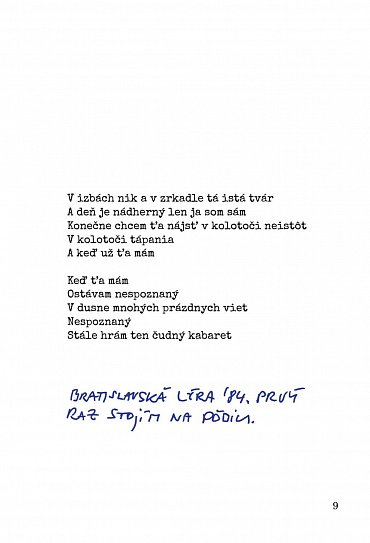 V izbách nik a v zrkadle tá istá tvár
A deň je nádherný len ja som sám
Konečne chcem ťa nájsť v kolotoči neistôt
V kolotoči tápania
A keď už ťa mám
Keď ťa mám
Ostávam nespoznaný
V dusne mnohých prázdnych viet
Nespoznaný
Stále hrám ten čudný kabaret
BRATISLAVSKÁ LÝRA '84, PRVÝ
RAZ STOJÍM NA PÓDIU.
9